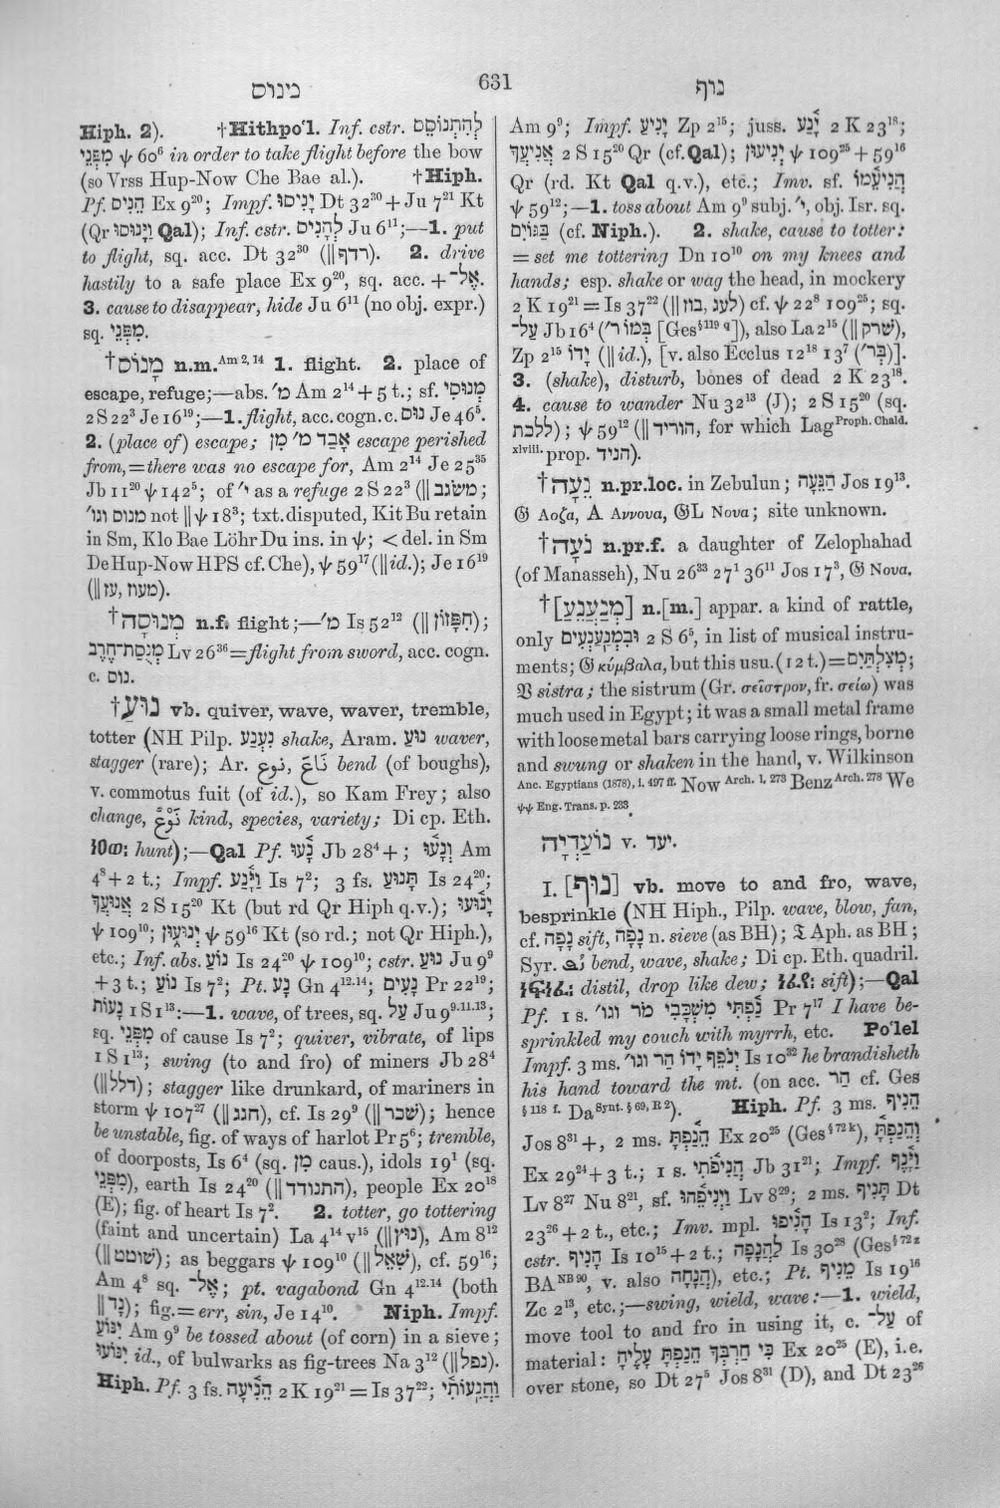 מינוס
631
נוף
Hiph. 2). †Hithpo‘l. Inf. cstr. לְהִתְנוֹסֵם
מִפְּנֵי ψ 60⁶ in order to take flight before the bow
(so Vrss Hup-Now Che Bae al.). †Hiph.
Pf. הֵנִיס Ex 9²⁰; Impf. יָנִיסוּ Dt 32³⁰ + Ju 7²¹ Kt
(Qr וַיָּנוּסוּ Qal); Inf. cstr. לְהָנִים Ju 6¹¹;—1. put
to flight, sq. acc. Dt 32³⁰ (|| רדף). 2. drive
hastily to a safe place Ex 9²⁰, sq. acc. + אֶל־.
3. cause to disappear, hide Ju 6¹¹ (no obj. expr.)
sq. מִפְּנֵי.
†מָנוֹס n.m. Am 2, 14 1. flight. 2. place of
escape, refuge;—abs. מ׳ Am 2¹⁴ + 5 t.; sf. מְנוּסִי
2 S 22³ Je 16¹⁹;—1. flight, acc. cogn. c. נוּס Je 46⁵.
2. (place of) escape; אָבַד מ׳ מִן escape perished
from, = there was no escape for, Am 2¹⁴ Je 25³⁵
Jb 11²⁰ ψ 142⁵; of י׳ as a refuge 2 S 22³ (|| משׂגב;
מנוס וגו׳ not || ψ 18³; txt. disputed, Kit Bu retain
in Sm, Klo Bae Löhr Du ins. in ψ; < del. in Sm
De Hup-Now HPS cf. Che), ψ 59¹⁷ (|| id.); Je 16¹⁹
(|| מעוז, עז).
†מְנוּסָה n.f. flight;—מ׳ Is 52¹² (|| חִפָּזוֹן);
מְנֻסַת־חֶרֶב Lv 26³⁶ = flight from sword, acc. cogn.
c. נוס.
†נוּעַ vb. quiver, wave, waver, tremble,
totter (NH Pilp. נִעְנַע shake, Aram. נוּעַ waver,
stagger (rare); Ar. نَاعَ, نوع bend (of boughs),
v. commotus fuit (of id.), so Kam Frey; also
change, نَوْع kind, species, variety; Di cp. Eth.
hunt);—Qal Pf. נָעוּ Jb 28⁴ +; וְנָעוּ Am
4⁸ + 2 t.; Impf. וַיָּנַע Is 7²; 3 fs. תָּנוּעַ Is 24²⁰;
אֲנוּעֲךָ 2 S 15²⁰ Kt (but rd Qr Hiph q.v.); יָנוּעוּ
ψ 109¹⁰; יְנוּעוּן ψ 59¹⁶ Kt (so rd.; not Qr Hiph.),
etc.; Inf. abs. נוֹעַ Is 24²⁰ ψ 109¹⁰; cstr. נוּעַ Ju 9⁹
+ 3 t.; נוֹעַ Is 7²; Pt. נָע Gn 4¹²·¹⁴; נָעִים Pr 22¹⁹;
נָעוֹת 1 S 1¹³:—1. wave, of trees, sq. עַל Ju 9⁹·¹¹·¹³;
sq. מִפְּנֵי of cause Is 7²; quiver, vibrate, of lips
1 S 1¹³; swing (to and fro) of miners Jb 28⁴
(|| דלל); stagger like drunkard, of mariners in
storm ψ 107²⁷ (|| חגג), cf. Is 29⁹ (|| שׁכר); hence
be unstable, fig. of ways of harlot Pr 5⁶; tremble,
of doorposts, Is 6⁴ (sq. מִן caus.), idols 19¹ (sq.
מִפְּנֵי), earth Is 24²⁰ (|| התנודד), people Ex 20¹⁸
(E); fig. of heart Is 7². 2. totter, go tottering
(faint and uncertain) La 4¹⁴ v¹⁵ (|| נוץ), Am 8¹²
(|| שׁוטט); as beggars ψ 109¹⁰ (|| שָׁאַל), cf. 59¹⁶;
Am 4⁸ sq. אֶל־; pt. vagabond Gn 4¹²·¹⁴ (both
|| נָד); fig. = err, sin, Je 14¹⁰. Niph. Impf.
יִנּוֹעַ Am 9⁹ be tossed about (of corn) in a sieve;
יִנּוֹעוּ id., of bulwarks as fig-trees Na 3¹² (|| נפל).
Hiph. Pf. 3 fs. הֵנִיעָה 2 K 19²¹ = Is 37²²; וַהֲנִעוֹתִי
Am 9⁹; Impf. יָנִיעַ Zp 2¹⁵; juss. יָנַע 2 K 23¹⁸;
אֲנִיעֲךָ 2 S 15²⁰ Qr (cf. Qal); יְנִיעוּן ψ 109²⁵ + 59¹⁶
Qr (rd. Kt Qal q.v.), etc.; Imv. sf. הֲנִיעֵמוֹ
ψ 59¹²;—1. toss about Am 9⁹ subj. י׳, obj. Isr. sq.
בַּגּוֹיִם (cf. Niph.). 2. shake, cause to totter:
= set me tottering Dn 10¹⁰ on my knees and
hands; esp. shake or wag the head, in mockery
2 K 19²¹ = Is 37²² (|| לעג, בוז) cf. ψ 22⁸ 109²⁵; sq.
עַל־ Jb 16⁴ (בְּמוֹ ר׳ [Ges §¹¹⁹ ᑫ]), also La 2¹⁵ (|| שׁרק),
Zp 2¹⁵ יָדוֹ (|| id.), [v. also Ecclus 12¹⁸ 13⁷ (בְּר׳)].
3. (shake), disturb, bones of dead 2 K 23¹⁸.
4. cause to wander Nu 32¹³ (J); 2 S 15²⁰ (sq.
ללכת); ψ 59¹² (|| הוריד, for which Lag Proph. Chald.
xlviii. prop. הניד).
†נֵעָה n.pr.loc. in Zebulun; הַנֵּעָה Jos 19¹³.
𝔊 Αοζα, A Αννουα, 𝔊L Νουα; site unknown.
†נֹעָה n.pr.f. a daughter of Zelophahad
(of Manasseh), Nu 26³³ 27¹ 36¹¹ Jos 17³, 𝔊 Νουα.
†[מְנַעְנֵעַ] n.[m.] appar. a kind of rattle,
only וּבִמְנַעַנְעִים 2 S 6⁵, in list of musical instru-
ments; 𝔊 κύμβαλα, but this usu. (12 t.) = מְצִלְתַּיִם;
𝔙 sistra; the sistrum (Gr. σεῖστρον, fr. σείω) was
much used in Egypt; it was a small metal frame
with loose metal bars carrying loose rings, borne
and swung or shaken in the hand, v. Wilkinson
Anc. Egyptians (1878), i. 497 ff. Now Arch. 1, 273 Benz Arch. 278 We
ψψ Eng. Trans. p. 233.
נוֹעַדְיָה v. יעד.
I. [נוּף] vb. move to and fro, wave,
besprinkle (NH Hiph., Pilp. wave, blow, fan,
cf. נָפָה sift, נָפָה n. sieve (as BH); 𝔗 Aph. as BH;
Syr. bend, wave, shake; Di cp. Eth. quadril.
distil, drop like dew; sift);—Qal
Pf. 1 s. נַפְתִּי מִשְׁכָּבִי מֹר וגו׳ Pr 7¹⁷ I have be-
sprinkled my couch with myrrh, etc. Po‘lel
Impf. 3 ms. יְנֹפֵף יָדוֹ הַר וגו׳ Is 10³² he brandisheth
his hand toward the mt. (on acc. הַר cf. Ges
§ 118 f. Da Synt. § 69, R 2). Hiph. Pf. 3 ms. הֵנִיף
Jos 8³¹ +, 2 ms. הֵנַפְתָּ Ex 20²⁵ (Ges § 72 k), וְהֵנַפְתָּ
Ex 29²⁴ + 3 t.; 1 s. הֲנִיפֹתִי Jb 31²¹; Impf. וַיָּנֶף
Lv 8²⁷ Nu 8²¹, sf. וַיְנִיפֵהוּ Lv 8²⁹; 2 ms. תָּנִיף Dt
23²⁶ + 2 t., etc.; Imv. mpl. הָנִיפוּ Is 13²; Inf.
cstr. הָנִיף Is 10¹⁵ + 2 t.; לַהֲנָפָה Is 30²⁸ (Ges § 72 z
BA NB 90, v. also הֲנָחָה), etc.; Pt. מֵנִיף Is 19¹⁶
Zc 2¹³, etc.;—swing, wield, wave:—1. wield,
move tool to and fro in using it, c. עַל־ of
material: כִּי חַרְבְּךָ הֵנַפְתָּ עָלֶיהָ Ex 20²⁵ (E), i.e.
over stone, so Dt 27⁵ Jos 8³¹ (D), and Dt 23²⁶